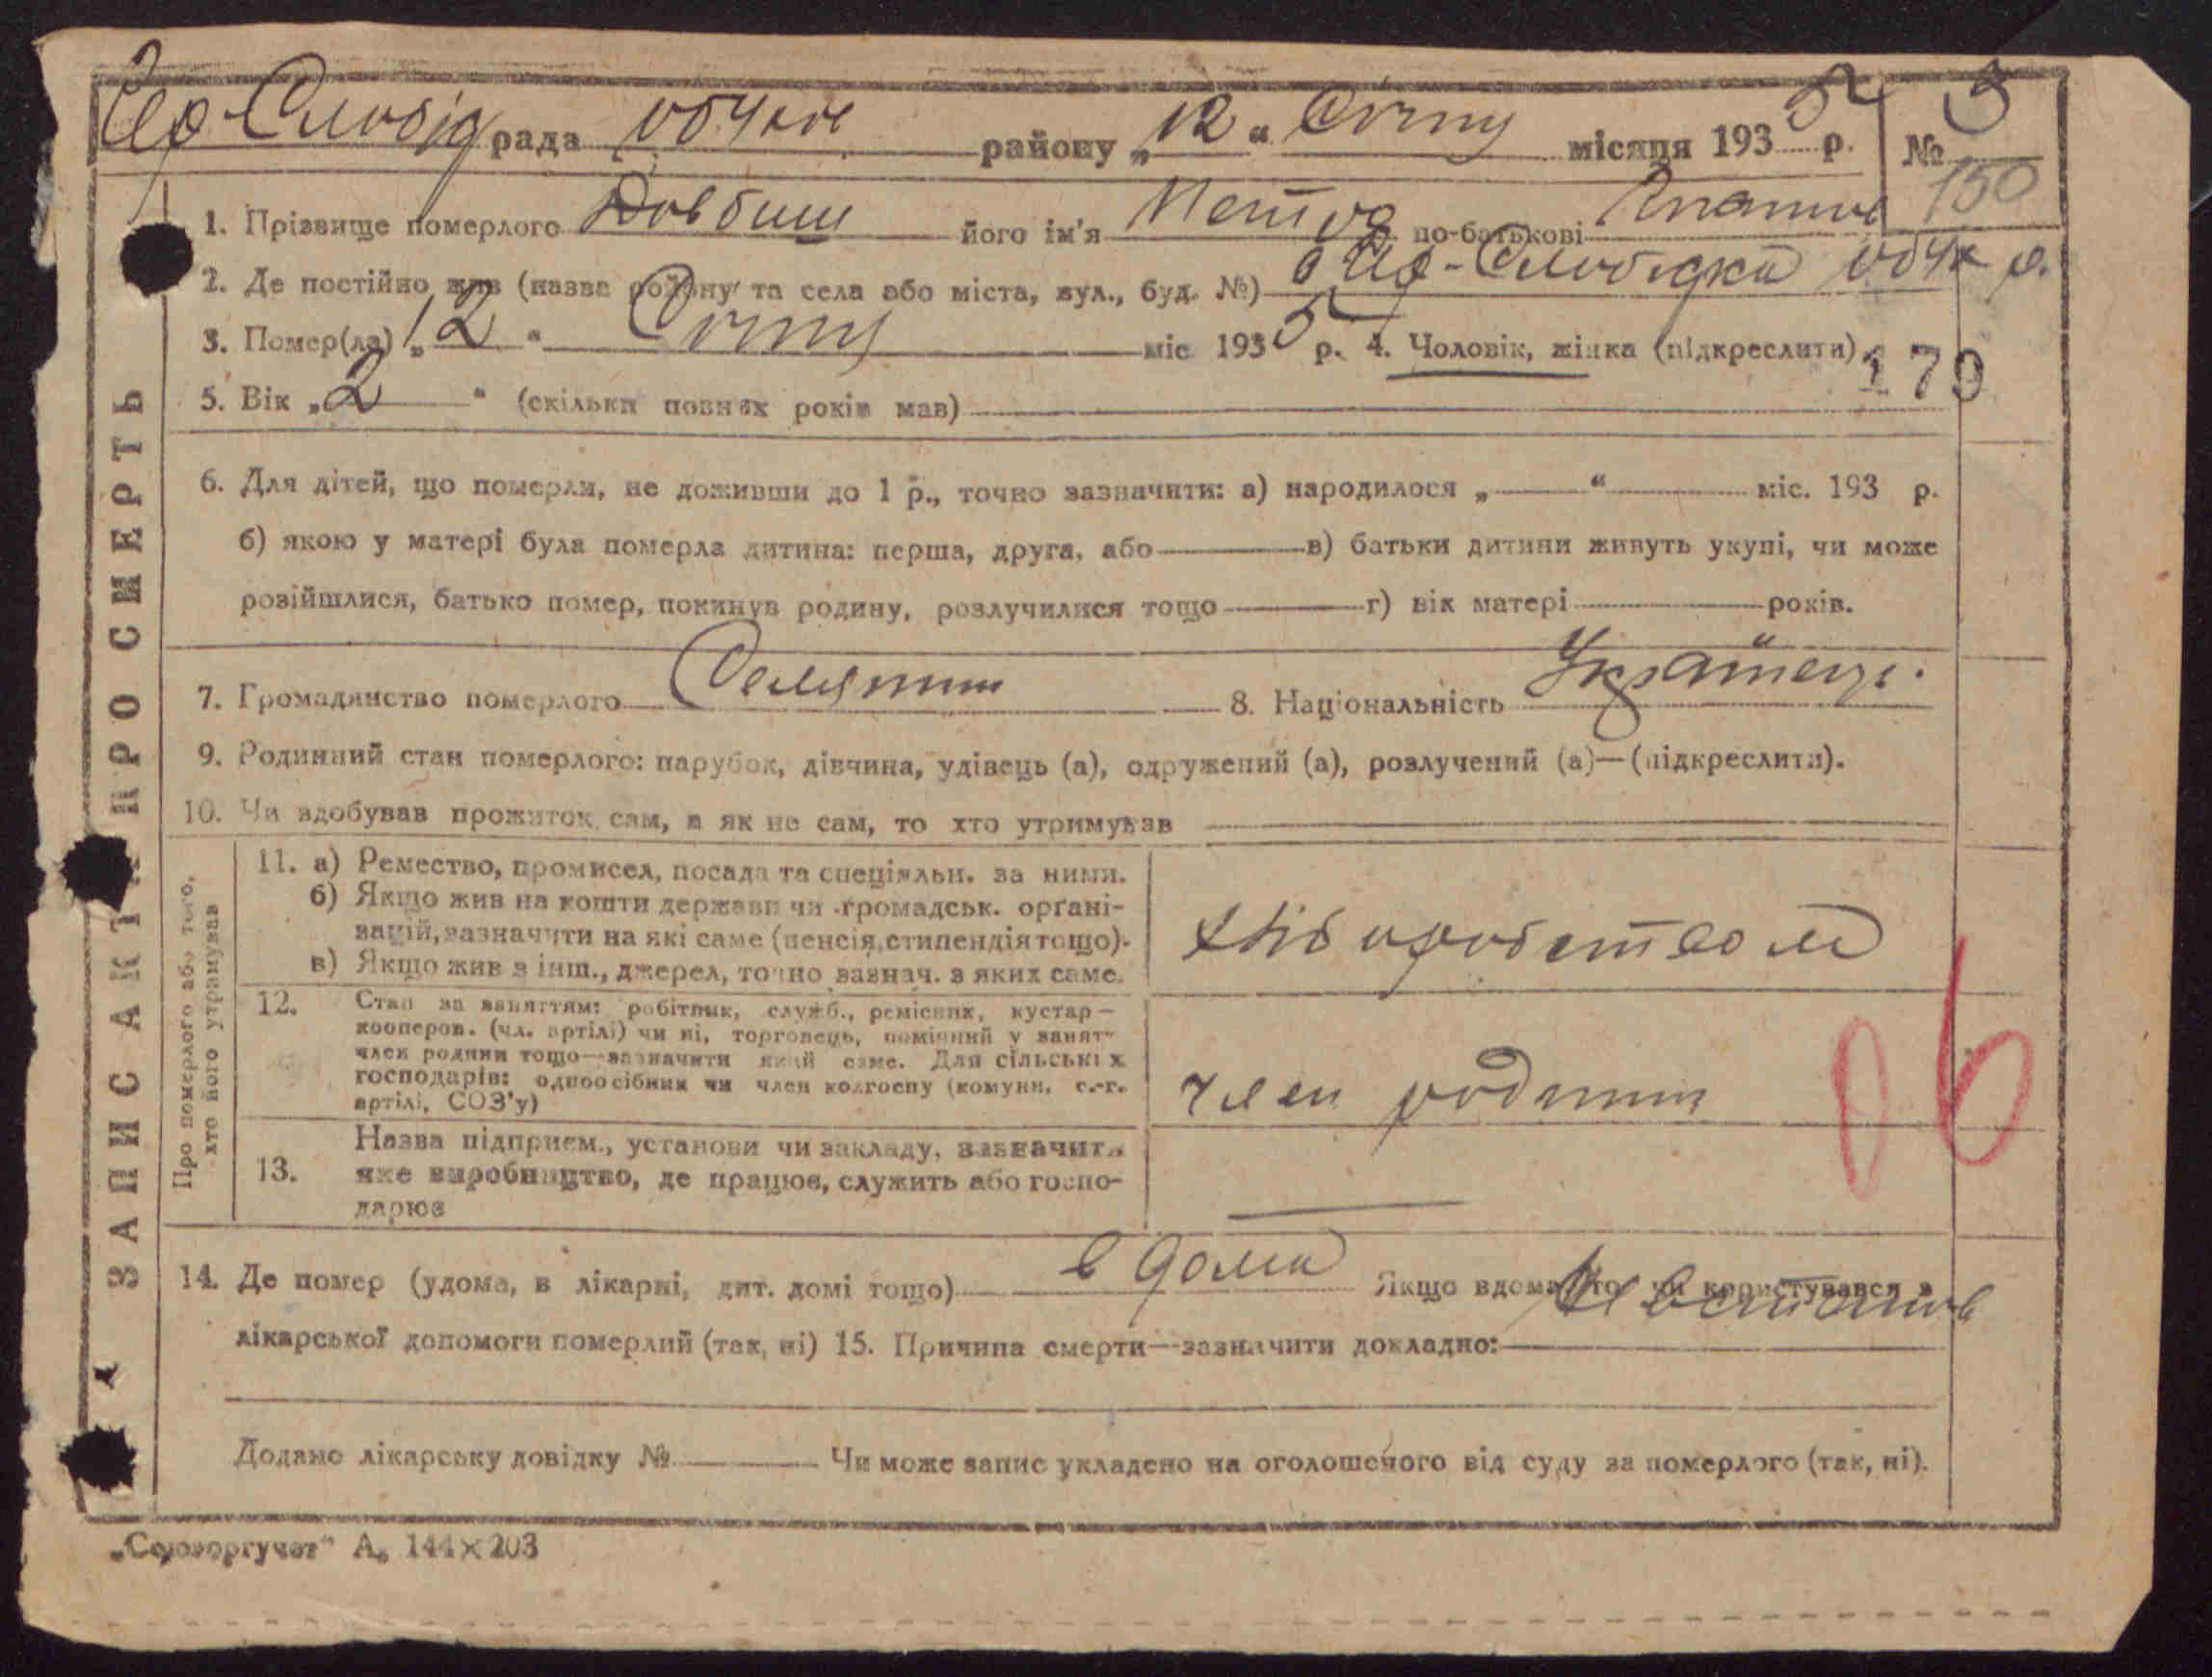 рада району „12“ Січня місяця 1935 р. № 3
150
1. Прізвище померлого Довбиш його ім'я по-батькові
2. Де постійно жив (назва району та села або міста, вул., буд. №) Слобідка р.
3. Помер(ла) „12“ Січня міс 1935 р. 4. Чоловік, жінка (підкреслити)
179
5. Вік „2“ (скільки повних років мав)
6. Для дітей, що померли, не доживши до 1 р., точно зазначити: а) народилося „ “ міс. 193 р.
б) якою у матері була померла дитина: перша, друга, або в) батьки дитини живуть укупі, чи може
розійшлися, батько помер, покинув родину, розлучилися тощо г) вік матері років.
7. Громадянство померлого Селянин 8. Національність Українець.
9. Родинний стан померлого: парубок, дівчина, удівець (а), одружений (а), розлучений (а)—(підкреслити).
10. Чи здобував прожиток сам, а як не сам, то хто утримував
11. а) Ремество, промисел, посада та спеціяльн. за ними.
б) Якщо жив на кошти держави чи громадськ. орґані-
зацій, зазначити на які саме (пенсія, стипендія тощо).
в) Якщо жив з інш., джерел, точно зазнач. з яких саме.
хліборобством
12. Стан за заняттям: робітник, служб., ремісник, кустар—
кооперов. (чл. артілі) чи ні, торговець, помічний у занятт
член родини тощо—зазначити який саме. Для сільських
господарів: одноосібник чи член колгоспу (комуни, с.-г.
артілі, СОЗ'у)
член родини
06
13. Назва підприєм., установи чи закладу, зазначити
яке виробництво, де працює, служить або госпо-
дарює
14. Де помер (удома, в лікарні, дит. домі тощо) в дома Якщо вдома, то чи користувався з
лікарської допомоги померлий (так, ні) 15. Причина смерти—зазначити докладно:
Додано лікарську довідку № Чи може запис укладено на оголошеного від суду за померлого (так, ні).
ЗАПИС АКТА ПРО СМЕРТЬ
Про померлого або того,
хто його утримував
„Союзоргучет“ А„ 144×203